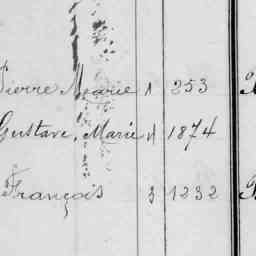 Pierre Marie 1 253
Gustave, Marie 4 1874
François 3 1232